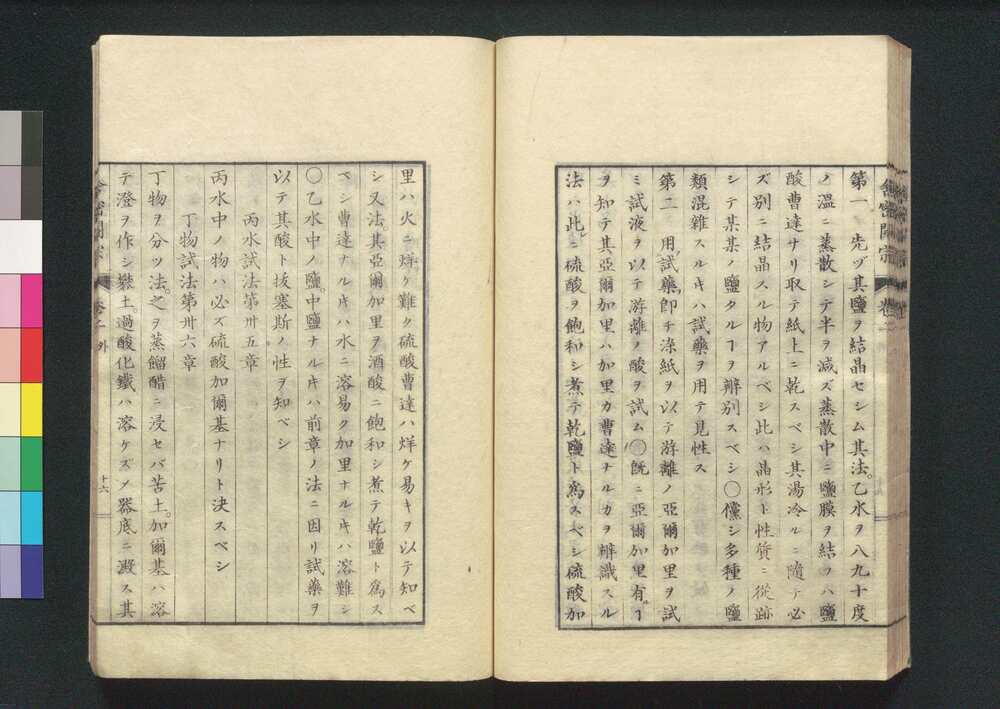 第一 先ヅ其鹽ヲ結晶セシム其法。乙水ヲ八九十度
ノ溫ニ蒸散シテ半ヲ減ズ蒸散中ニ鹽膜ヲ結フハ鹽
酸曹達ナリ取テ紙上ニ乾スベシ其湯冷ルニ隨テ必
ズ別ニ結晶スル物アルベシ此ハ晶形ト性質ニ從跡
シテ某某ノ鹽タルヿヲ辨別スベシ〇儻シ多種ノ鹽
類混雜スルキハ試藥ヲ用テ見性ス
第二 用試藥即チ染紙ヲ以テ游離ノ亞爾加里ヲ試
ミ試液ヲ以テ游離ノ酸ヲ試ム〇旣ニ亞爾加里有。ヿ
ヲ知テ其亞爾加里ハ加里カ曹達ナルカヲ辨識スル
法ハ此ニ硫酸ヲ飽和シ煮テ乾鹽ト爲スベシ硫酸加
舎密開宗 卷二
里ハ火ニ烊ケ難ク硫酸曹達ハ烊ケ易キヲ以テ知ベ
シ又法。其亞爾加里ヲ酒酸ニ飽和シ煮テ乾鹽ト爲ス
ベシ曹達ナルキハ水ニ溶易ク加里ナルキハ溶難シ
〇乙水中ノ鹽。中鹽ナルキハ前章ノ法ニ因リ試藥ヲ
以テ其酸ト拔塞斯ノ性ヲ知ベシ
丙水試法第卅五章
丙水中ノ物ハ必ズ硫酸加爾基ナリト決スベシ
丁物試法第卅六章
丁物ヲ分ツ法。之ヲ蒸餾醋ニ浸セバ苦土。加爾基ハ溶
テ澄ヲ作シ礬土。過酸化鐵ハ溶ケズノ器底ニ澱ス其
舎密開宗 卷二外 十六